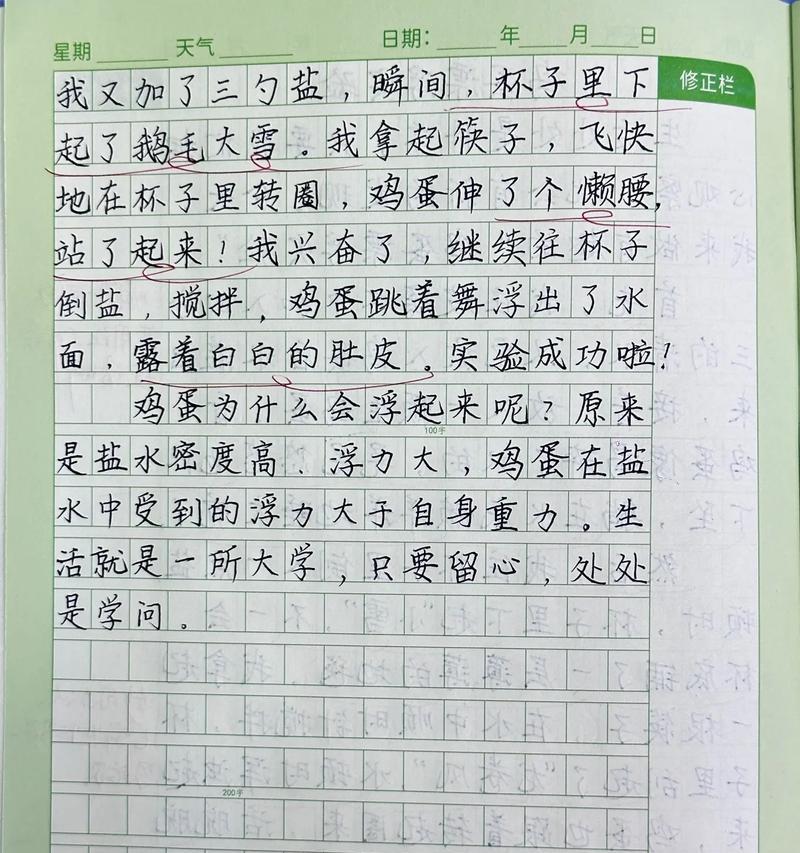 星期 天气 日期： 年 月 日
修正栏
我又加了三勺盐，瞬间，杯子里下
起了鹅毛大雪。我拿起筷子，飞快
地在杯子里转圈，鸡蛋伸了个懒腰，
站了起来！我兴奋了，继续往杯子
倒盐，搅拌，鸡蛋跳着舞浮出了水
面，露着白白的肚皮。实验成功啦！
鸡蛋为什么会浮起来呢？原来
100字
是盐水密度高、浮力大，鸡蛋在盐
水中受到的浮力大于自身重力。生
活就是一所大学，只要留心，处处
是学问。
200字